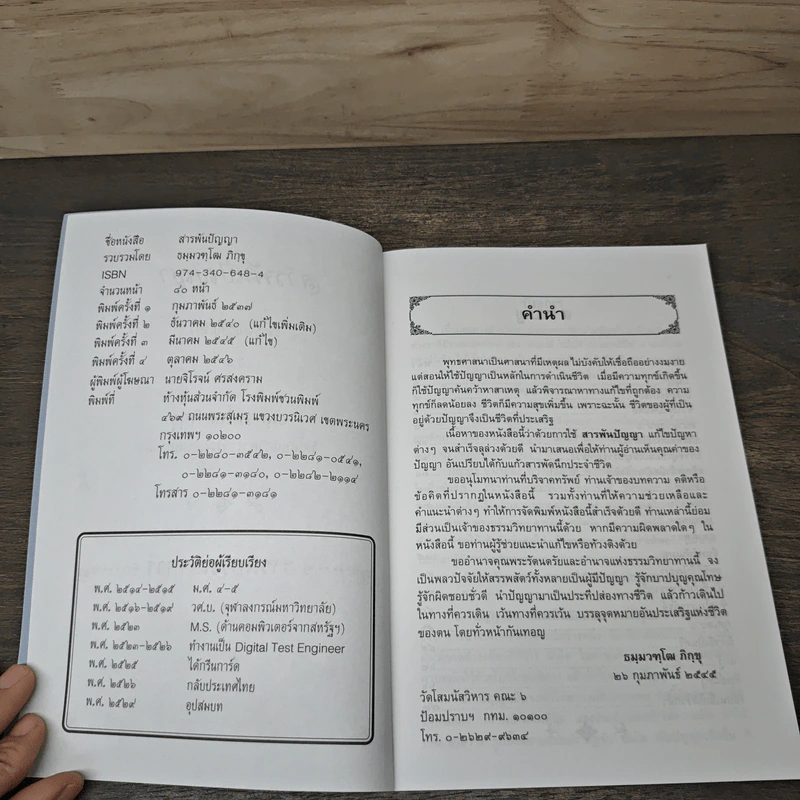 ชื่อหนังสือ สารพันปัญญา
รวบรวมโดย ธมฺมวฑฺโฒ ภิกฺขุ
ISBN 974-340-648-4
จำนวนหน้า ๘๐ หน้า
พิมพ์ครั้งที่ ๑ กุมภาพันธ์ ๒๕๓๗
พิมพ์ครั้งที่ ๒ ธันวาคม ๒๕๔๐ (แก้ไขเพิ่มเติม)
พิมพ์ครั้งที่ ๓ มีนาคม ๒๕๔๕ (แก้ไข)
พิมพ์ครั้งที่ ๔ ตุลาคม ๒๕๔๖
ผู้พิมพ์ผู้โฆษณา นายจิโรจน์ ศรสงคราม
พิมพ์ที่ ห้างหุ้นส่วนจำกัด โรงพิมพ์ชวนพิมพ์
๔๖๙ ถนนพระสุเมรุ แขวงบวรนิเวศ เขตพระนคร
กรุงเทพฯ ๑๐๒๐๐
โทร. ๐-๒๒๘๐-๓๕๔๒, ๐-๒๒๘๑-๐๕๔๑,
๐-๒๒๘๑-๓๑๘๐, ๐-๒๒๘๒-๒๑๑๔
โทรสาร ๐-๒๒๘๑-๓๑๘๑
ประวัติย่อผู้เรียบเรียง
พ.ศ. ๒๕๑๔-๒๕๑๕ ม.ศ. ๔-๕
พ.ศ. ๒๕๑๖-๒๕๑๙ วศ.บ. (จุฬาลงกรณ์มหาวิทยาลัย)
พ.ศ. ๒๕๒๓ M.S. (ด้านคอมพิวเตอร์จากสหรัฐฯ)
พ.ศ. ๒๕๒๓-๒๕๒๖ ทำงานเป็น Digital Test Engineer
พ.ศ. ๒๕๒๕ ได้กรีนการ์ด
พ.ศ. ๒๕๒๖ กลับประเทศไทย
พ.ศ. ๒๕๒๙ อุปสมบท
คำนำ
พุทธศาสนาเป็นศาสนาที่มีเหตุผล ไม่บังคับให้เชื่อถืออย่างงมงาย
แต่สอนให้ใช้ปัญญาเป็นหลักในการดำเนินชีวิต เมื่อมีความทุกข์เกิดขึ้น
ก็ใช้ปัญญาค้นคว้าหาสาเหตุ แล้วพิจารณาหาทางแก้ไขที่ถูกต้อง ความ
ทุกข์ก็ลดน้อยลง ชีวิตก็มีความสุขเพิ่มขึ้น เพราะฉะนั้น ชีวิตของผู้ที่เป็น
อยู่ด้วยปัญญาจึงเป็นชีวิตที่ประเสริฐ
เนื้อหาของหนังสือนี้ว่าด้วยการใช้ สารพันปัญญา แก้ไขปัญหา
ต่างๆ จนสำเร็จลุล่วงด้วยดี นำมาเสนอเพื่อให้ท่านผู้อ่านเห็นคุณค่าของ
ปัญญา อันเปรียบได้กับแก้วสารพัดนึกประจำชีวิต
ขออนุโมทนาท่านที่บริจาคทรัพย์ ท่านเจ้าของบทความ คติหรือ
ข้อคิดที่ปรากฏในหนังสือนี้ รวมทั้งท่านที่ให้ความช่วยเหลือและ
คำแนะนำต่างๆ ทำให้การจัดพิมพ์หนังสือนี้สำเร็จด้วยดี ท่านเหล่านี้ย่อม
มีส่วนเป็นเจ้าของธรรมวิทยาทานนี้ด้วย หากมีความผิดพลาดใดๆ ใน
หนังสือนี้ ขอท่านผู้รู้ช่วยแนะนำแก้ไขหรือท้วงติงด้วย
ขออำนาจคุณพระรัตนตรัยและอำนาจแห่งธรรมวิทยาทานนี้ จง
เป็นพลวปัจจัยให้สรรพสัตว์ทั้งหลายเป็นผู้มีปัญญา รู้จักบาปบุญคุณโทษ
รู้จักผิดชอบชั่วดี นำปัญญามาเป็นประทีปส่องทางชีวิต แล้วก้าวเดินไป
ในทางที่ควรเดิน เว้นทางที่ควรเว้น บรรลุจุดหมายอันประเสริฐแห่งชีวิต
ของตน โดยทั่วหน้ากันเทอญ
ธมฺมวฑฺโฒ ภิกฺขุ
๒๖ กุมภาพันธ์ ๒๕๔๕
วัดโสมนัสวิหาร คณะ ๖
ป้อมปราบฯ กทม. ๑๐๑๐๐
โทร. ๐-๒๖๒๙-๙๖๓๔